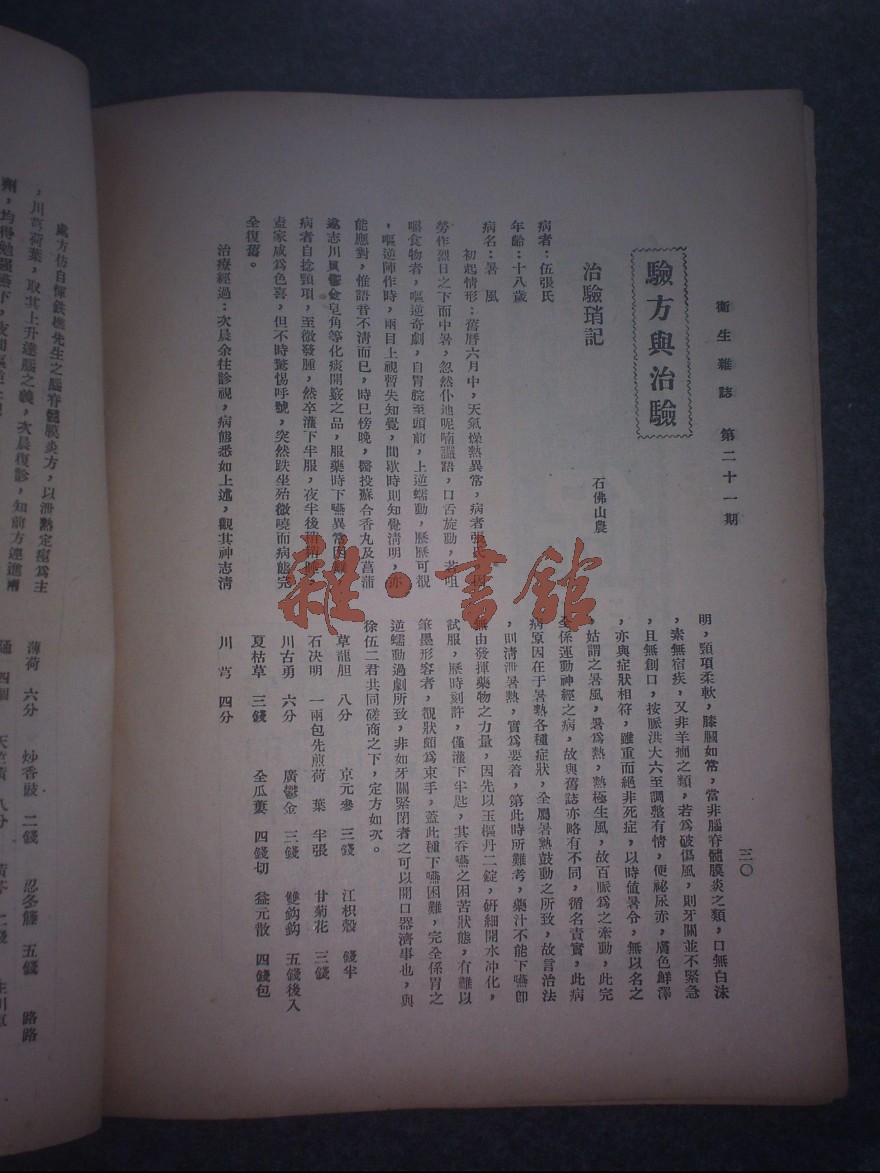 衞生雜誌 第二十一期
三〇
驗方與治驗
治驗瑣記
石佛山農
病者：伍張氏
年齡：十八歲
病名：暑風
初起情形：舊曆六月中，天氣燥熱異常，病者張氏，因
勞作烈日之下而中暑，忽然仆地呢喃讝語，口舌旋動，若咀
嚼食物者，嘔逆奇劇，自胃脘至頭前，上逆蠕動，歷歷可覩
，嘔逆陣作時，兩目上視暫失知覺，間歇時則知覺清明，亦
能應對，惟語音不清而已，時已傍晚，醫投蘇合香丸及菖蒲
遠志川貝鬱金皂角等化痰開竅之品，服藥時下嚥異常困難
病者自捻頸項，至微發腫，然卒灌下半服，夜半後稍稍
壺家咸爲色喜，但不時驚惕呼號，突然跌坐殆微曉而病態完
全復舊。
治療經過：次晨余往診視，病態悉如上述，觀其神志清
明，頸項柔軟，膝膕如常，當非腦脊髓膜炎之類，口無白沫
，素無宿疾，又非羊癇之類，若爲破傷風，則牙關並不緊急
，且無創口，按脈洪大六至調整有情，便祕尿赤，膚色鮮澤
，亦與症狀相符，雖重而絕非死症，以時値暑令，無以名之
，姑謂之暑風，暑爲熱，熱極生風，故百脈爲之牽動，此完
全係運動神經之病，故與舊誌亦略有不同，循名責實，此病
病原因在于暑熱各種症狀，全屬暑熱鼓動之所致，故言治法
，則清泄暑熱，實爲要着，第此時所難考，藥汁不能下嚥卽
無由發揮藥物之力量，因先以玉樞丹二錠，研細開水冲化，
試服，歷時刻許，僅灌下半匙，其吞嚥之困苦狀態，有難以
筆墨形容者，覩狀頗爲束手，蓋此種下嚥困難，完全係胃之
逆蠕動過劇所致，非如牙關緊閉者之可以開口器濟事也，與
徐伍二君共同磋商之下，定方如次。
草龍胆 八分 京元參 三錢 江枳殼 錢半
石决明 一兩包先煎 荷葉 半張 甘菊花 三錢
川古勇 六分 廣鬱金 三錢 雙鈎鈎 五錢後入
夏枯草 三錢 全瓜蔞 四錢切 益元散 四錢包
川芎 四分
處方仿自惲鉄樵先生之腦脊髓膜炎方，以泄熱定痙爲主
，川芎荷葉，取其上升達腦之義，次晨復診，知前方連進兩
劑，均得勉強嚥下，夜間
薄荷 六分 炒香豉 二錢 忍冬籐 五錢 路路
通 四個 天竺黃 八分 黃芩 二錢
雜·書館